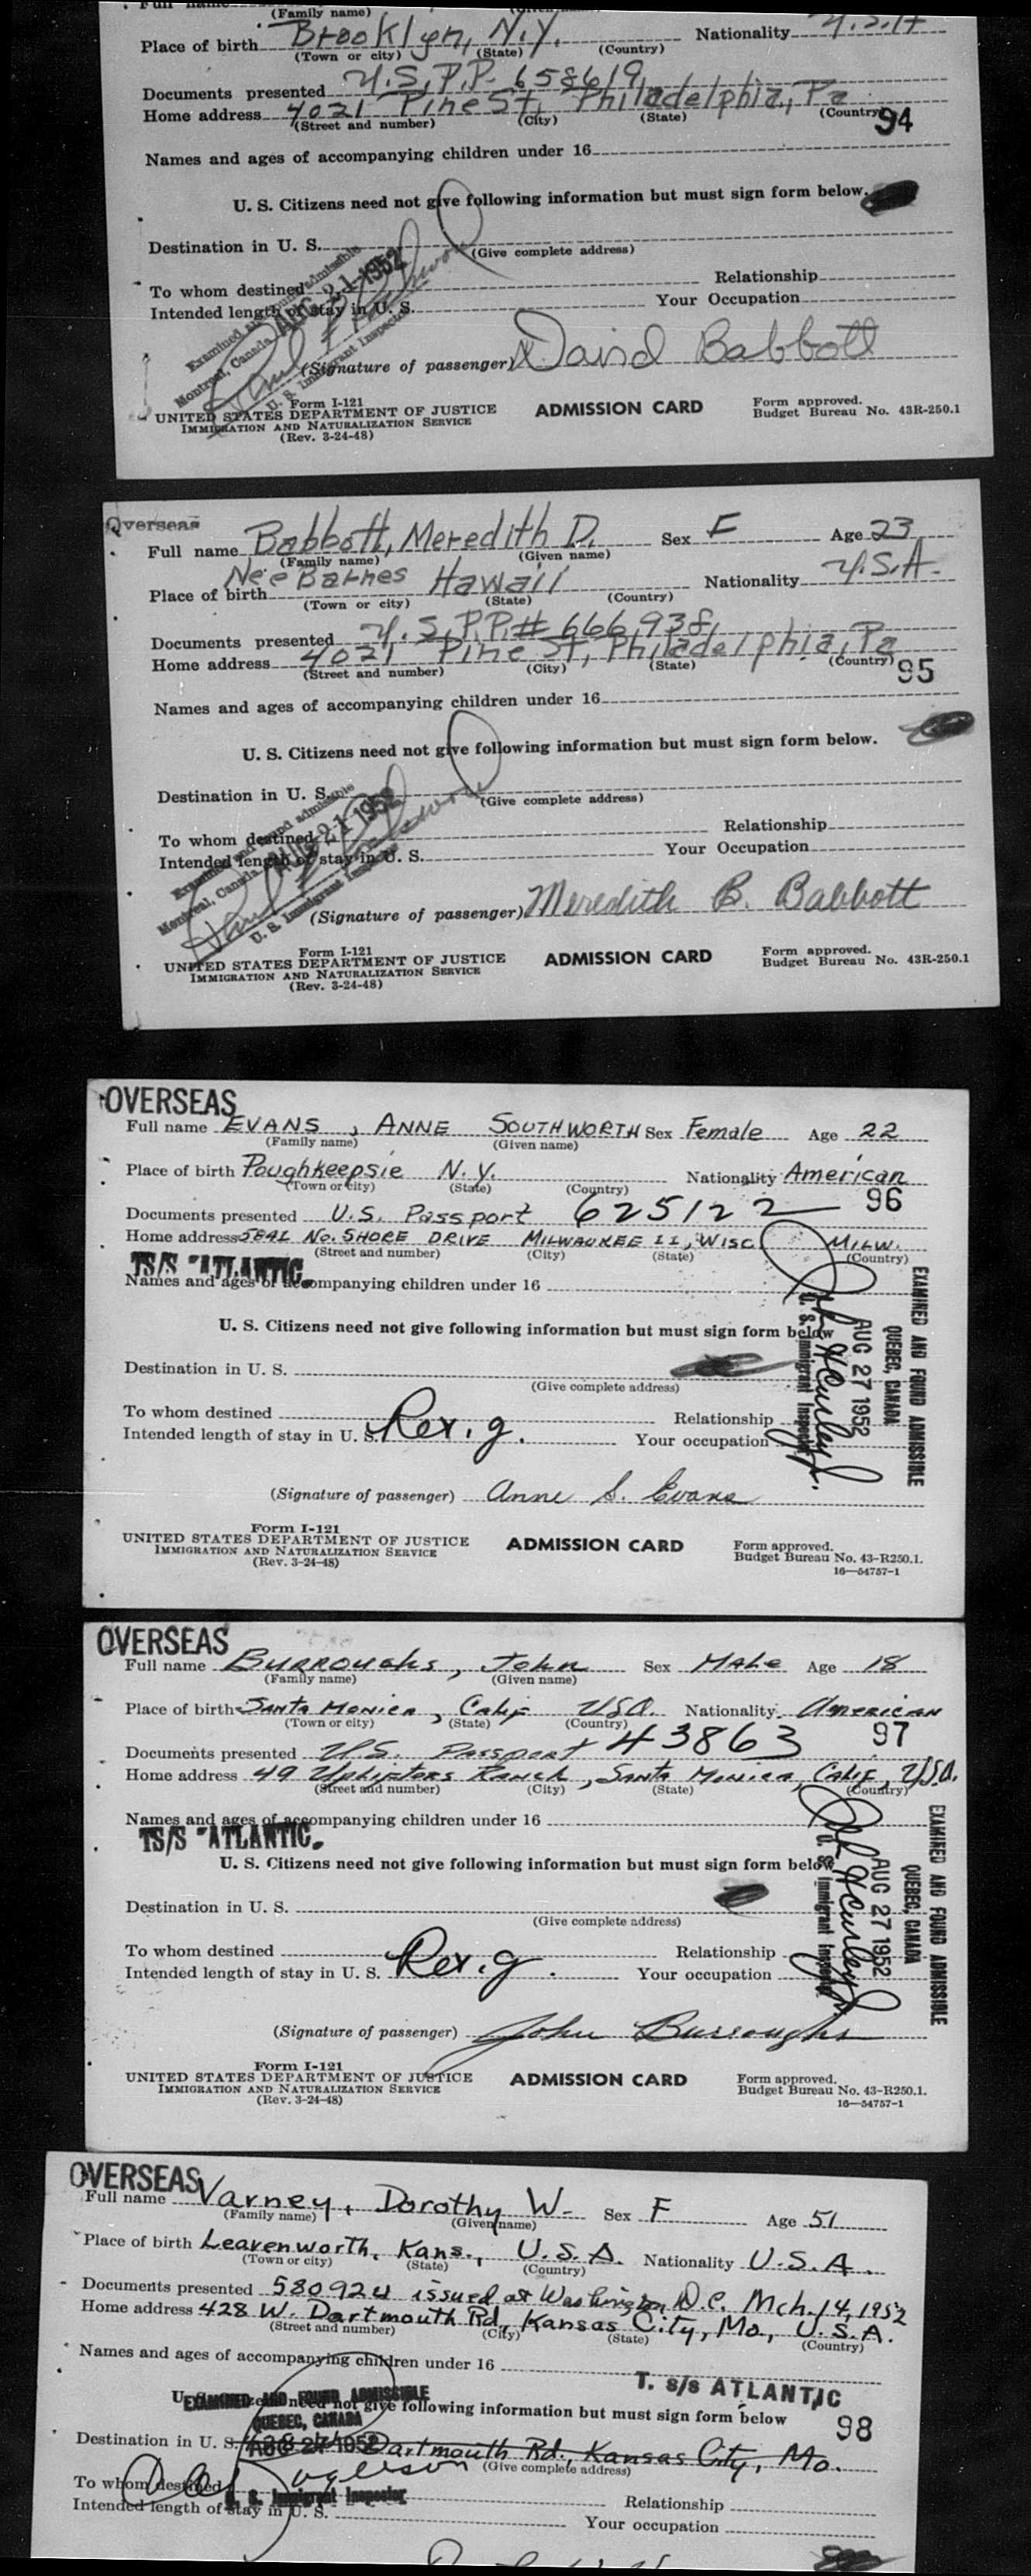 Full name
(Family name) (Given name)
Place of birth Brooklyn, N.Y. Nationality U.S.A
(Town or city) (State) (Country)
Documents presented U.S.P.P. 658619
Home address 4021 Pine St, Philadelphia, Pa
(Street and number) (City) (State) (Country) 94
Names and ages of accompanying children under 16
U. S. Citizens need not give following information but must sign form below.
Destination in U. S.
(Give complete address)
To whom destined Relationship
Intended length of stay in U. S. Your Occupation
Examined and found admissible
Montreal, Canada AUG 21 1952
U. S. Immigrant Inspector
(Signature of passenger) X David Babbott
Form I-121
UNITED STATES DEPARTMENT OF JUSTICE ADMISSION CARD Form approved.
IMMIGRATION AND NATURALIZATION SERVICE Budget Bureau No. 43R-250.1
(Rev. 3-24-48)
Overseas
Full name Babbott, Meredith D. Sex F Age 23
(Family name) (Given name)
Nee Barnes
Place of birth Hawaii Nationality U.S.A.
(Town or city) (State) (Country)
Documents presented U.S.P.P.# 666938
Home address 4021 Pine St, Philadelphia, Pa
(Street and number) (City) (State) (Country) 95
Names and ages of accompanying children under 16
U. S. Citizens need not give following information but must sign form below.
Destination in U. S.
(Give complete address)
To whom destined Relationship
Intended length of stay in U. S. Your Occupation
Examined and found admissible
Montreal, Canada AUG 21 1952
U. S. Immigrant Inspector
(Signature of passenger) Meredith B. Babbott
Form I-121
UNITED STATES DEPARTMENT OF JUSTICE ADMISSION CARD Form approved.
IMMIGRATION AND NATURALIZATION SERVICE Budget Bureau No. 43R-250.1
(Rev. 3-24-48)
OVERSEAS
Full name EVANS, ANNE SOUTHWORTH Sex Female Age 22
(Family name) (Given name)
Place of birth Poughkeepsie N.Y. Nationality American
(Town or city) (State) (Country) 96
Documents presented U.S. Passport 625122
Home address 5841 No. SHORE DRIVE MILWAUKEE 11, WISC MILW.
(Street and number) (City) (State) (Country)
TS/S "ATLANTIC"
Names and ages of accompanying children under 16
U. S. Citizens need not give following information but must sign form below
Destination in U. S.
(Give complete address)
To whom destined Relationship
Intended length of stay in U. S. Rex.g. Your occupation
EXAMINED AND FOUND ADMISSIBLE
QUEBEC, CANADA
AUG 27 1952
U. S. Immigrant Inspector
(Signature of passenger) Anne S. Evans
Form I-121
UNITED STATES DEPARTMENT OF JUSTICE ADMISSION CARD Form approved.
IMMIGRATION AND NATURALIZATION SERVICE Budget Bureau No. 43-R250.1.
(Rev. 3-24-48) 16—54757-1
OVERSEAS
Full name Burroughs, John Sex Male Age 18
(Family name) (Given name)
Place of birth Santa Monica, Calif USA. Nationality American
(Town or city) (State) (Country) 97
Documents presented U.S. Passport 43863
Home address 49 Uplifters Ranch, Santa Monica, Calif, U.S.A.
(Street and number) (City) (State) (Country)
Names and ages of accompanying children under 16
TS/S "ATLANTIC"
U. S. Citizens need not give following information but must sign form below
Destination in U. S.
(Give complete address)
To whom destined Relationship
Intended length of stay in U. S. Rex.g. Your occupation
EXAMINED AND FOUND ADMISSIBLE
QUEBEC, CANADA
AUG 27 1952
U. S. Immigrant Inspector
(Signature of passenger) John Burroughs
Form I-121
UNITED STATES DEPARTMENT OF JUSTICE ADMISSION CARD Form approved.
IMMIGRATION AND NATURALIZATION SERVICE Budget Bureau No. 43-R250.1.
(Rev. 3-24-48) 16—54757-1
OVERSEAS
Full name Varney, Dorothy W. Sex F Age 51
(Family name) (Given name)
Place of birth Leavenworth, Kans., U.S.A. Nationality U.S.A.
(Town or city) (State) (Country)
Documents presented 580924 issued at Washington D.C. Mch. 14, 1952
Home address 428 W. Dartmouth Rd, Kansas City, Mo., U.S.A.
(Street and number) (City) (State) (Country)
Names and ages of accompanying children under 16
T. s/s ATLANTIC
U. S. Citizens need not give following information but must sign form below
98
EXAMINED AND FOUND ADMISSIBLE
QUEBEC, CANADA
AUG 27 1952
Destination in U. S. 428 W. Dartmouth Rd., Kansas City, Mo.
(Give complete address)
To whom destined Relationship
U. S. Immigrant Inspector
Intended length of stay in U. S. Your occupation